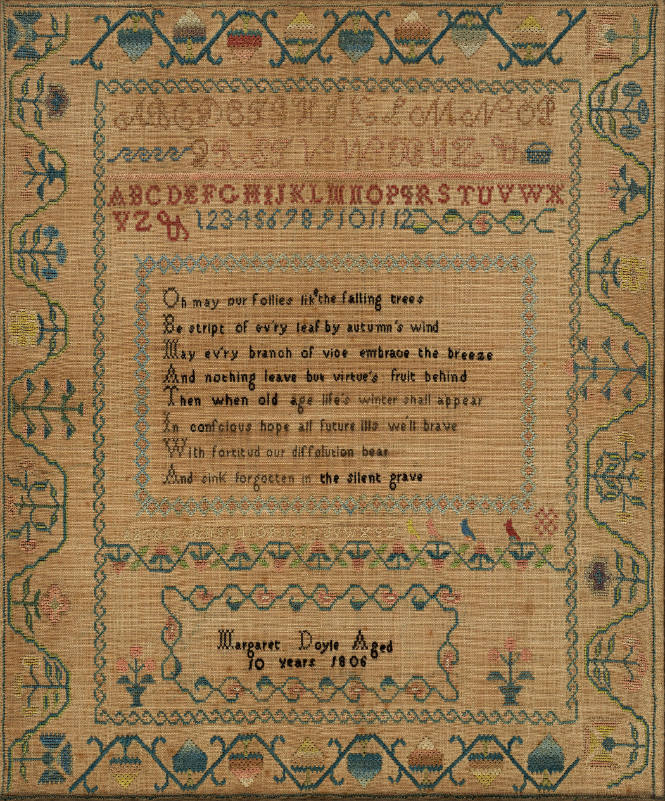 ABCDEFGHIJKLMNOP
QRSTVWXYZ &
ABCDEFGHIJKLMNOPQRSTUVWX
YZ & 123456789101112
Oh may our follies like the falling trees
Be stript of ev'ry leaf by autumn's wind
May ev'ry branch of vice embrace the breeze
And nothing leave but virtue's fruit behind
Then when old age life's winter shall appear
In conscious hope all future ills we'll brave
With fortitud our diſsolution bear
And sink forgotten in the silent grave
Margaret Doyle Aged
10 years 1806